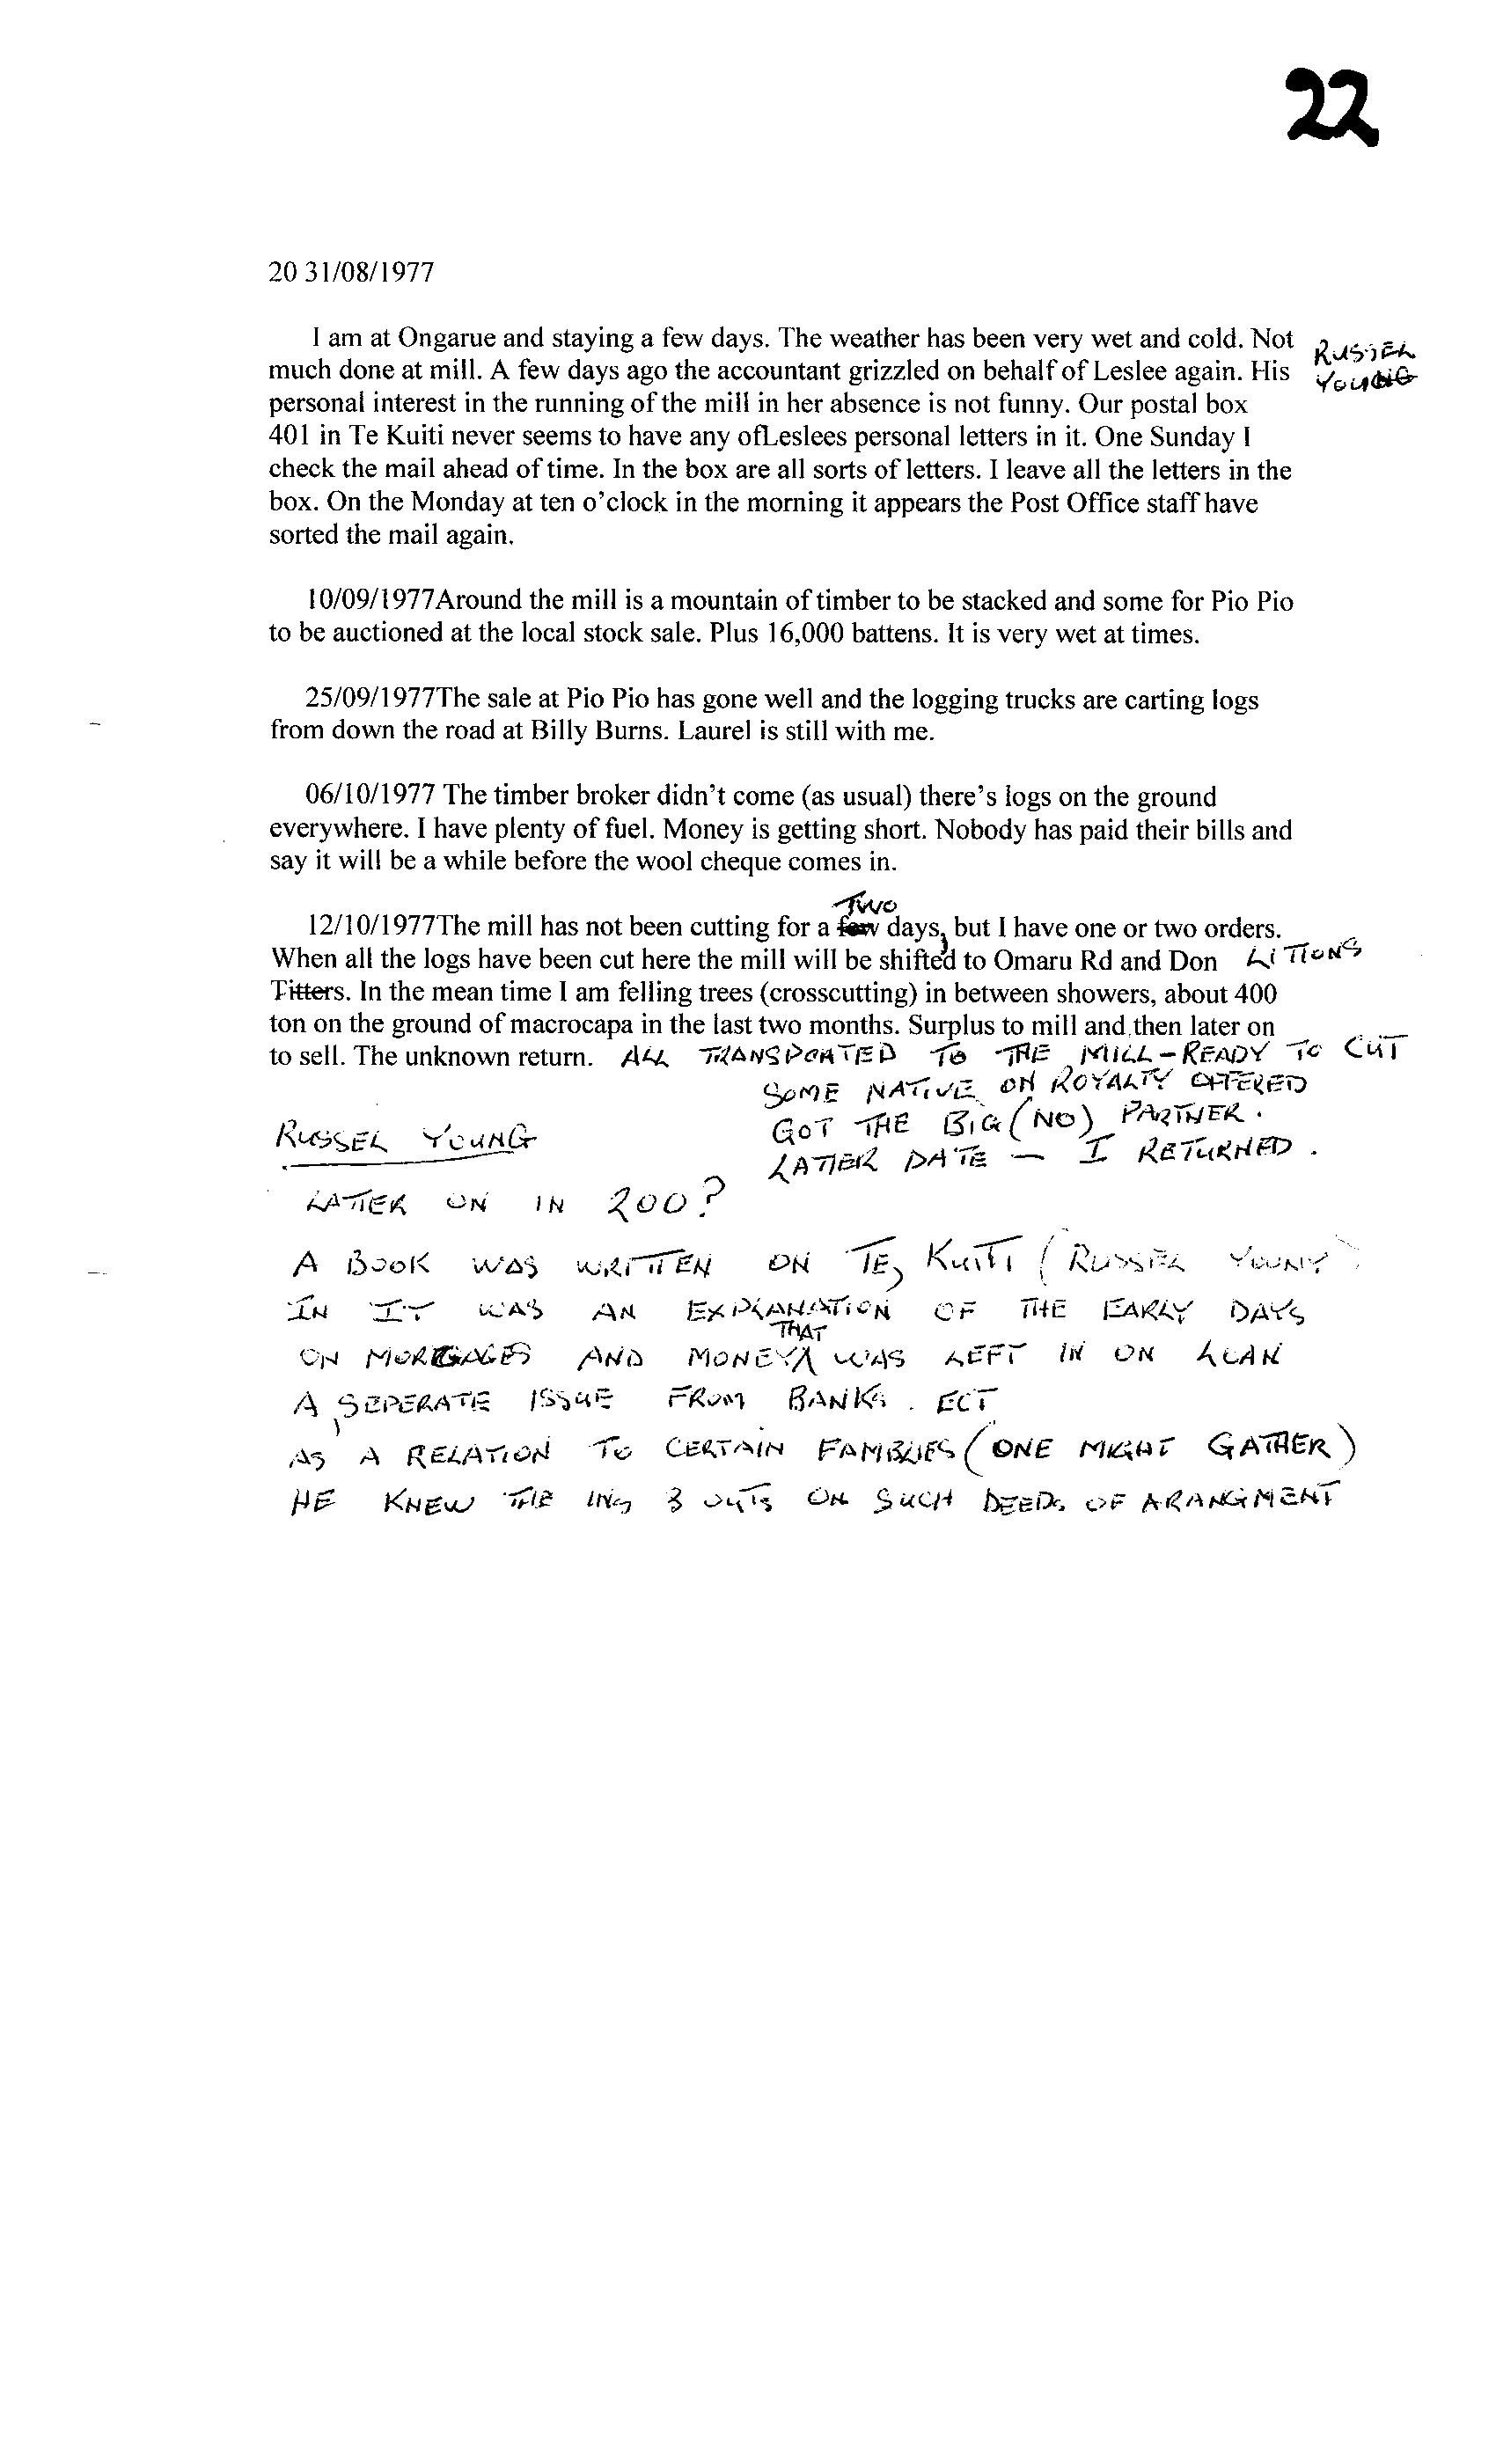 22
20 31/08/1977
I am at Ongarue and staying a few days. The weather has been very wet and cold. Not RUSSEL
much done at mill. A few days ago the accountant grizzled on behalf of Leslee again. His YOUNG
personal interest in the running of the mill in her absence is not funny. Our postal box
401 in Te Kuiti never seems to have any ofLeslees personal letters in it. One Sunday I
check the mail ahead of time. In the box are all sorts of letters. I leave all the letters in the
box. On the Monday at ten o’clock in the morning it appears the Post Office staff have
sorted the mail again.
10/09/1977Around the mill is a mountain of timber to be stacked and some for Pio Pio
to be auctioned at the local stock sale. Plus 16,000 battens. It is very wet at times.
25/09/1977The sale at Pio Pio has gone well and the logging trucks are carting logs
from down the road at Billy Burns. Laurel is still with me.
06/10/1977 The timber broker didn’t come (as usual) there’s logs on the ground
everywhere. I have plenty of fuel. Money is getting short. Nobody has paid their bills and
say it will be a while before the wool cheque comes in.
TWO
12/10/1977The mill has not been cutting for a few days, but I have one or two orders.
When all the logs have been cut here the mill will be shifted to Omaru Rd and Don LITTONS
Titters. In the mean time I am felling trees (crosscutting) in between showers, about 400
ton on the ground of macrocapa in the last two months. Surplus to mill and then later on
to sell. The unknown return. ALL TRANSPORTED TO THE MILL - READY TO CUT
SOME NATIVE ON ROYALTY OFFERED
GOT THE BIG (NO) PARTNER.
LATER DATE — I RETURNED.
RUSSEL YOUNG
LATER ON IN 200?
A BOOK WAS WRITTEN ON TE, KUITI (RUSSEL YOUNG)
IN IT WAS AN EXPLANATION OF THE EARLY DAYS
THAT
ON MORGAGES AND MONEY WAS LEFT IN ON LOAN
A SEPERATE ISSUE FROM BANKS. ECT
AS A RELATION TO CERTAIN FAMILIES (ONE MIGHT GATHER)
HE KNEW THE INS & OUTS ON SUCH DEEDS OF ARANGMENT